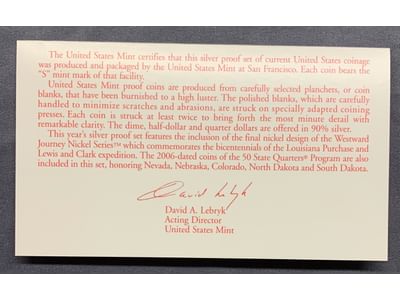 The United States Mint certifies that this silver proof set of current United States coinage
was produced and packaged by the United States Mint at San Francisco. Each coin bears the
"S" mint mark of that facility.
United States Mint proof coins are produced from carefully selected planchets, or coin
blanks, that have been burnished to a high luster. The polished blanks, which are carefully
handled to minimize scratches and abrasions, are struck on specially adapted coining
presses. Each coin is struck at least twice to bring forth the most minute detail with
remarkable clarity. The dime, half-dollar and quarter dollars are offered in 90% silver.
This year's silver proof set features the inclusion of the final nickel design of the Westward
Journey Nickel Series™ which commemorates the bicentennials of the Louisiana Purchase and
Lewis and Clark expedition. The 2006-dated coins of the 50 State Quarters® Program are also
included in this set, honoring Nevada, Nebraska, Colorado, North Dakota and South Dakota.
David Lebryk
David A. Lebryk
Acting Director
United States Mint